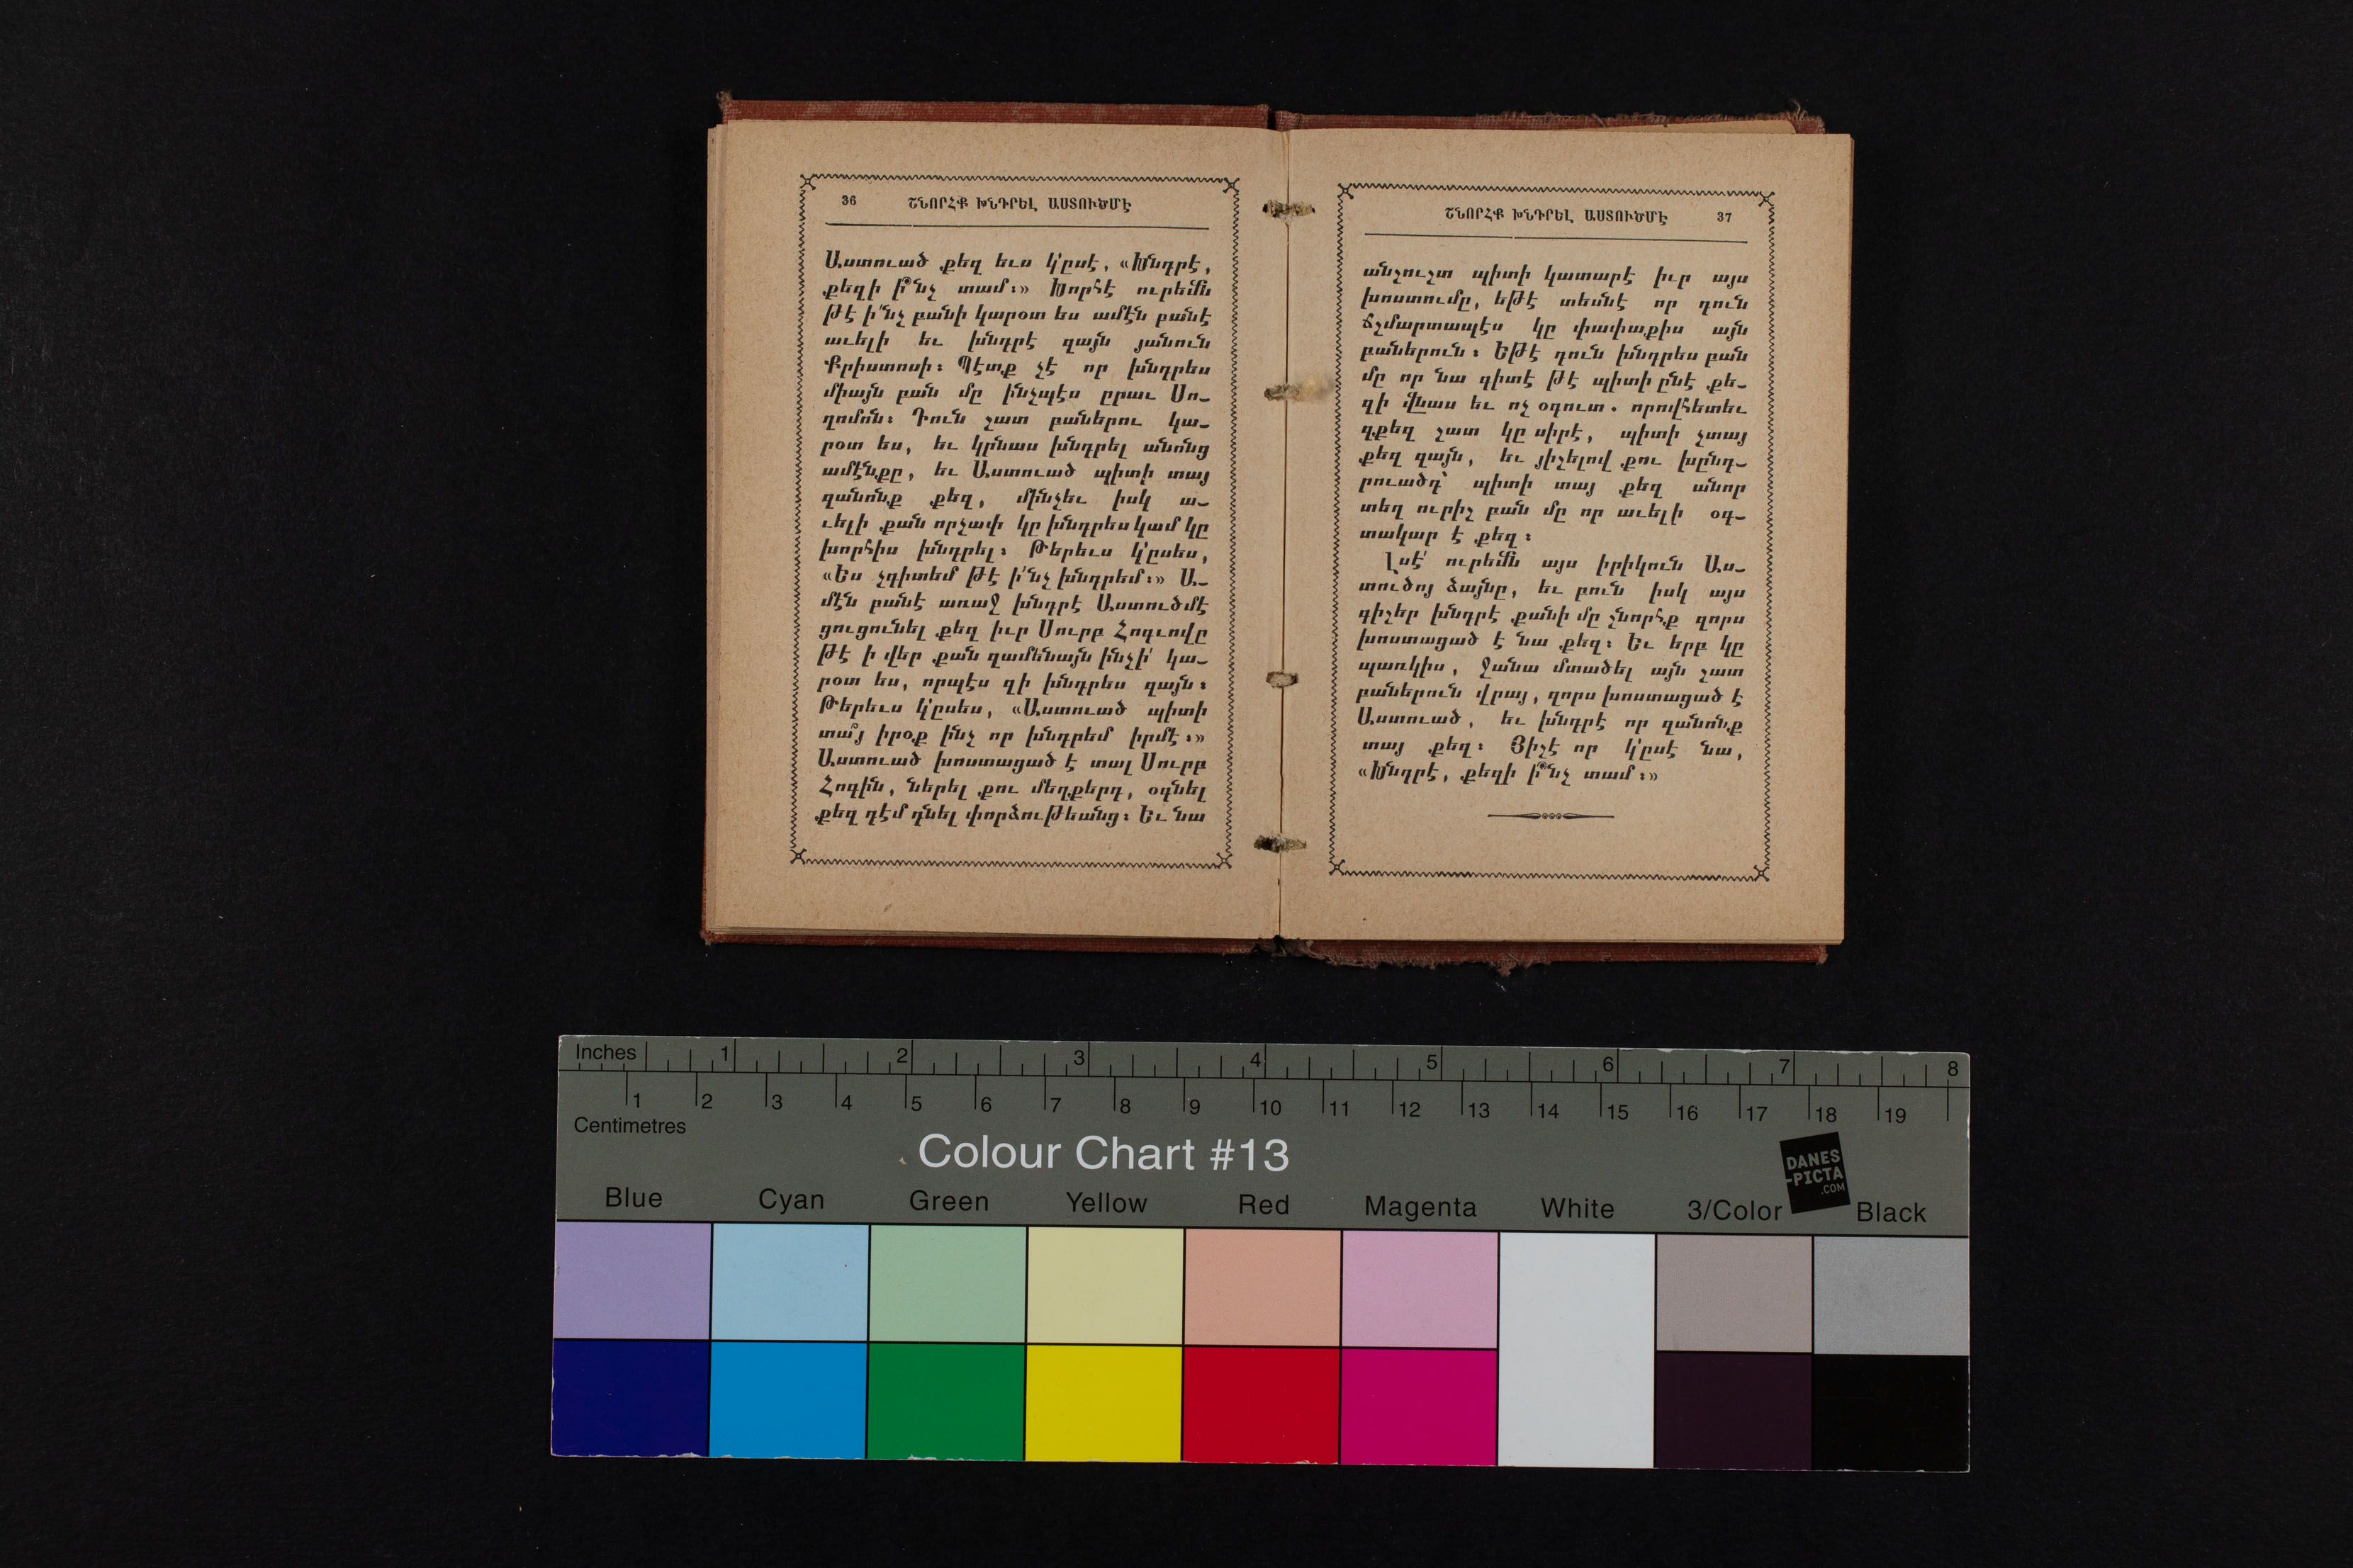 36 ՇՆՈՐՀՔ ԽՆԴՐԵԼ ԱՍՏՈՒԾՄԷ
Աստուած քեզ եւս կ՚ըսէ, «Խնդրէ,
քեզի ի՞նչ տամ։» Խորհէ ուրեմն
թէ ի՛նչ բանի կարօտ ես ամէն բանէ
աւելի եւ խնդրէ զայն յանուն
Քրիստոսի։ Պէտք չէ որ խնդրես
միայն բան մը ինչպէս ըրաւ Սո–
ղոմոն։ Դուն շատ բաներու կա–
րօտ ես, եւ կրնաս խնդրել անոնց
ամէնքը, եւ Աստուած պիտի տայ
զանոնք քեզ, մինչեւ իսկ ա–
ւելի քան որչափ կը խնդրես կամ կը
խորհիս խնդրել։ Թերեւս կ՚ըսես,
«Ես չգիտեմ թէ ի՛նչ խնդրեմ։» Ա–
մէն բանէ առաջ խնդրէ Աստուծմէ
ցուցունել քեզ իւր Սուրբ Հոգւովը
թէ ի վեր քան զամենայն ինչի՛ կա–
րօտ ես, որպէս զի խնդրես զայն։
Թերեւս կ՚ըսես, «Աստուած պիտի
տա՞յ իրօք ինչ որ խնդրեմ իրմէ։»
Աստուած խոստացած է տալ Սուրբ
Հոգին, ներել քու մեղքերդ, օգնել
քեզ դէմ դնել փորձութեանց։ Եւ նա
ՇՆՈՐՀՔ ԽՆԴՐԵԼ ԱՍՏՈՒԾՄԷ 37
անշուշտ պիտի կատարէ իւր այս
խոստումը, եթէ տեսնէ որ դուն
ճշմարտապէս կը փափաքիս այն
բաներուն։ Եթէ դուն խնդրես բան
մը որ նա գիտէ թէ պիտի ընէ քե–
զի վնաս եւ ոչ օգուտ. որովհետեւ
զքեզ շատ կը սիրէ, պիտի չտայ
քեզ զայն, եւ յիշելով քու խընդ–
րուածդ՝ պիտի տայ քեզ անոր
տեղ ուրիշ բան մը որ աւելի օգ–
տակար է քեզ։
Լսէ՛ ուրեմն այս իրիկուն Աս–
տուծոյ ձայնը, եւ բուն իսկ այս
գիշեր խնդրէ քանի մը շնորհք զորս
խոստացած է նա քեզ։ Եւ երբ կը
պառկիս, ջանա մտածել այն շատ
բաներուն վրայ, զորս խոստացած է
Աստուած, եւ խնդրէ որ զանոնք
տայ քեզ։ Յիշէ որ կ՚ըսէ նա,
«Խնդրէ, քեզի ի՞նչ տամ։»
Inches 1 2 3 4 5 6 7 8
1 2 3 4 5 6 7 8 9 10 11 12 13 14 15 16 17 18 19
Centimetres
Colour Chart #13
DANES
-PICTA
.COM
Blue Cyan Green Yellow Red Magenta White 3/Color Black